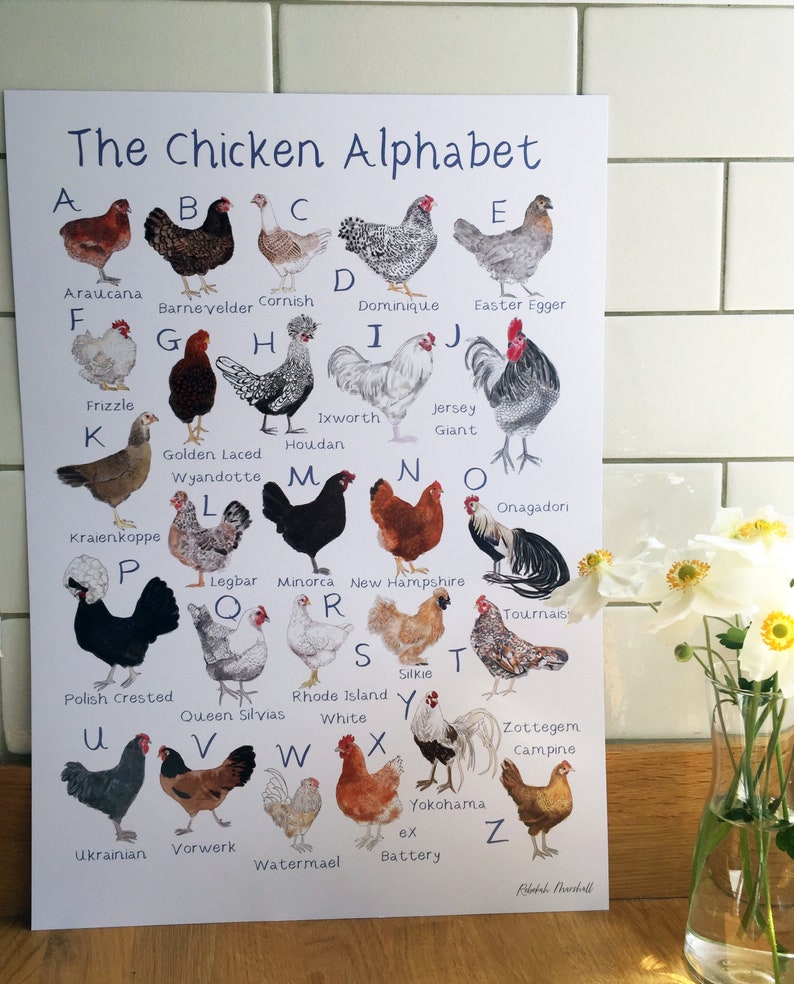 The Chicken Alphabet
A
Araucana
B
Barnevelder
C
Cornish
D
Dominique
E
Easter Egger
F
Frizzle
G
Golden Laced
Wyandotte
H
Houdan
I
Ixworth
J
Jersey
Giant
K
Kraienkoppe
L
Legbar
M
Minorca
N
New Hampshire
O
Onagadori
P
Polish Crested
Q
Queen Silvias
R
Rhode Island
White
S
Silkie
T
Tournaisi
U
Ukrainian
V
Vorwerk
W
Watermael
X
ex
Battery
Y
Yokohama
Z
Zottegem
Campine
Rebekah Marshall